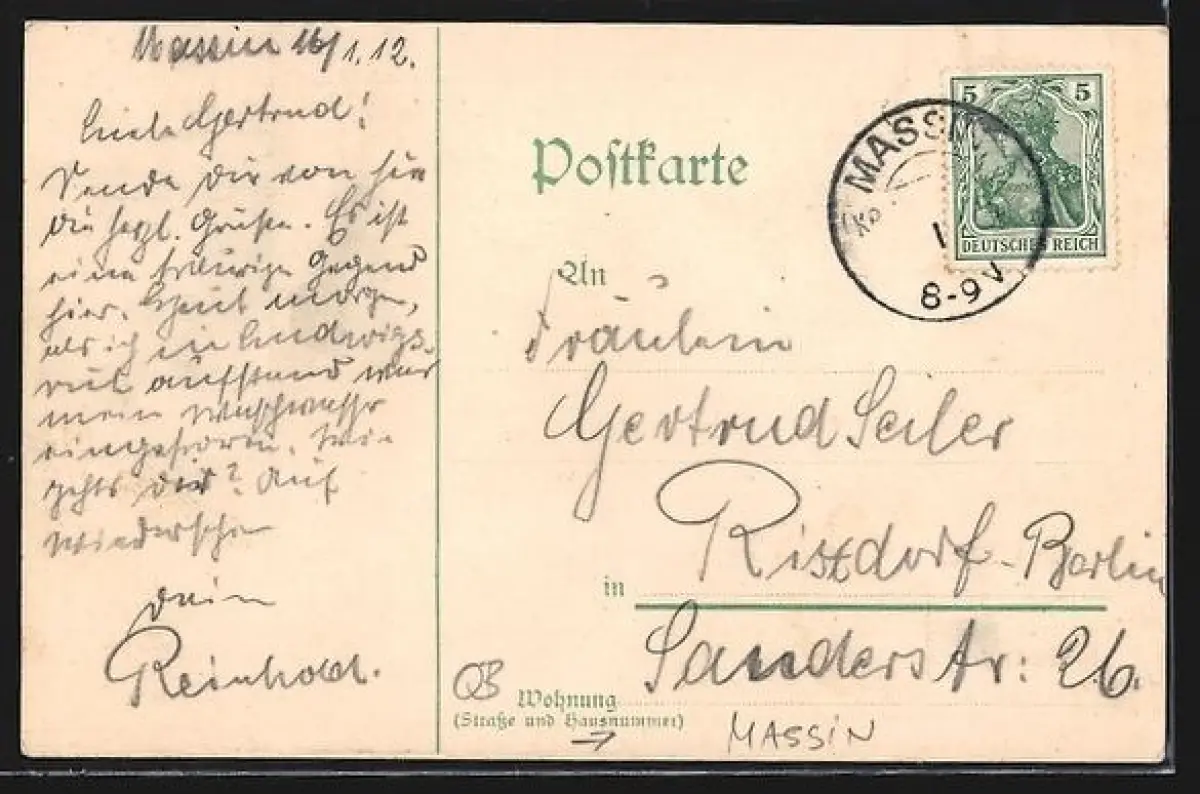 Massin 16/1.12.
Liebe Gertrud!
Sende dir von hier
die herzl. Grüße. Es ist
eine traurige Gegend
hier. Heut morgen,
als ich in Ludwigs-
ruh aufstand war
mein Waschwasser
eingefroren. Wie
gehts dir? Auf
Wiedersehen
dein
Reinhold.
Postkarte
5 5
DEUTSCHES REICH
MASSIN
8-9V
An
Fräulein
Gertrud Seiler
in Rixdorf-Berlin
Sanderstr: 26.
Wohnung
(Straße und Hausnummer)
MASSIN